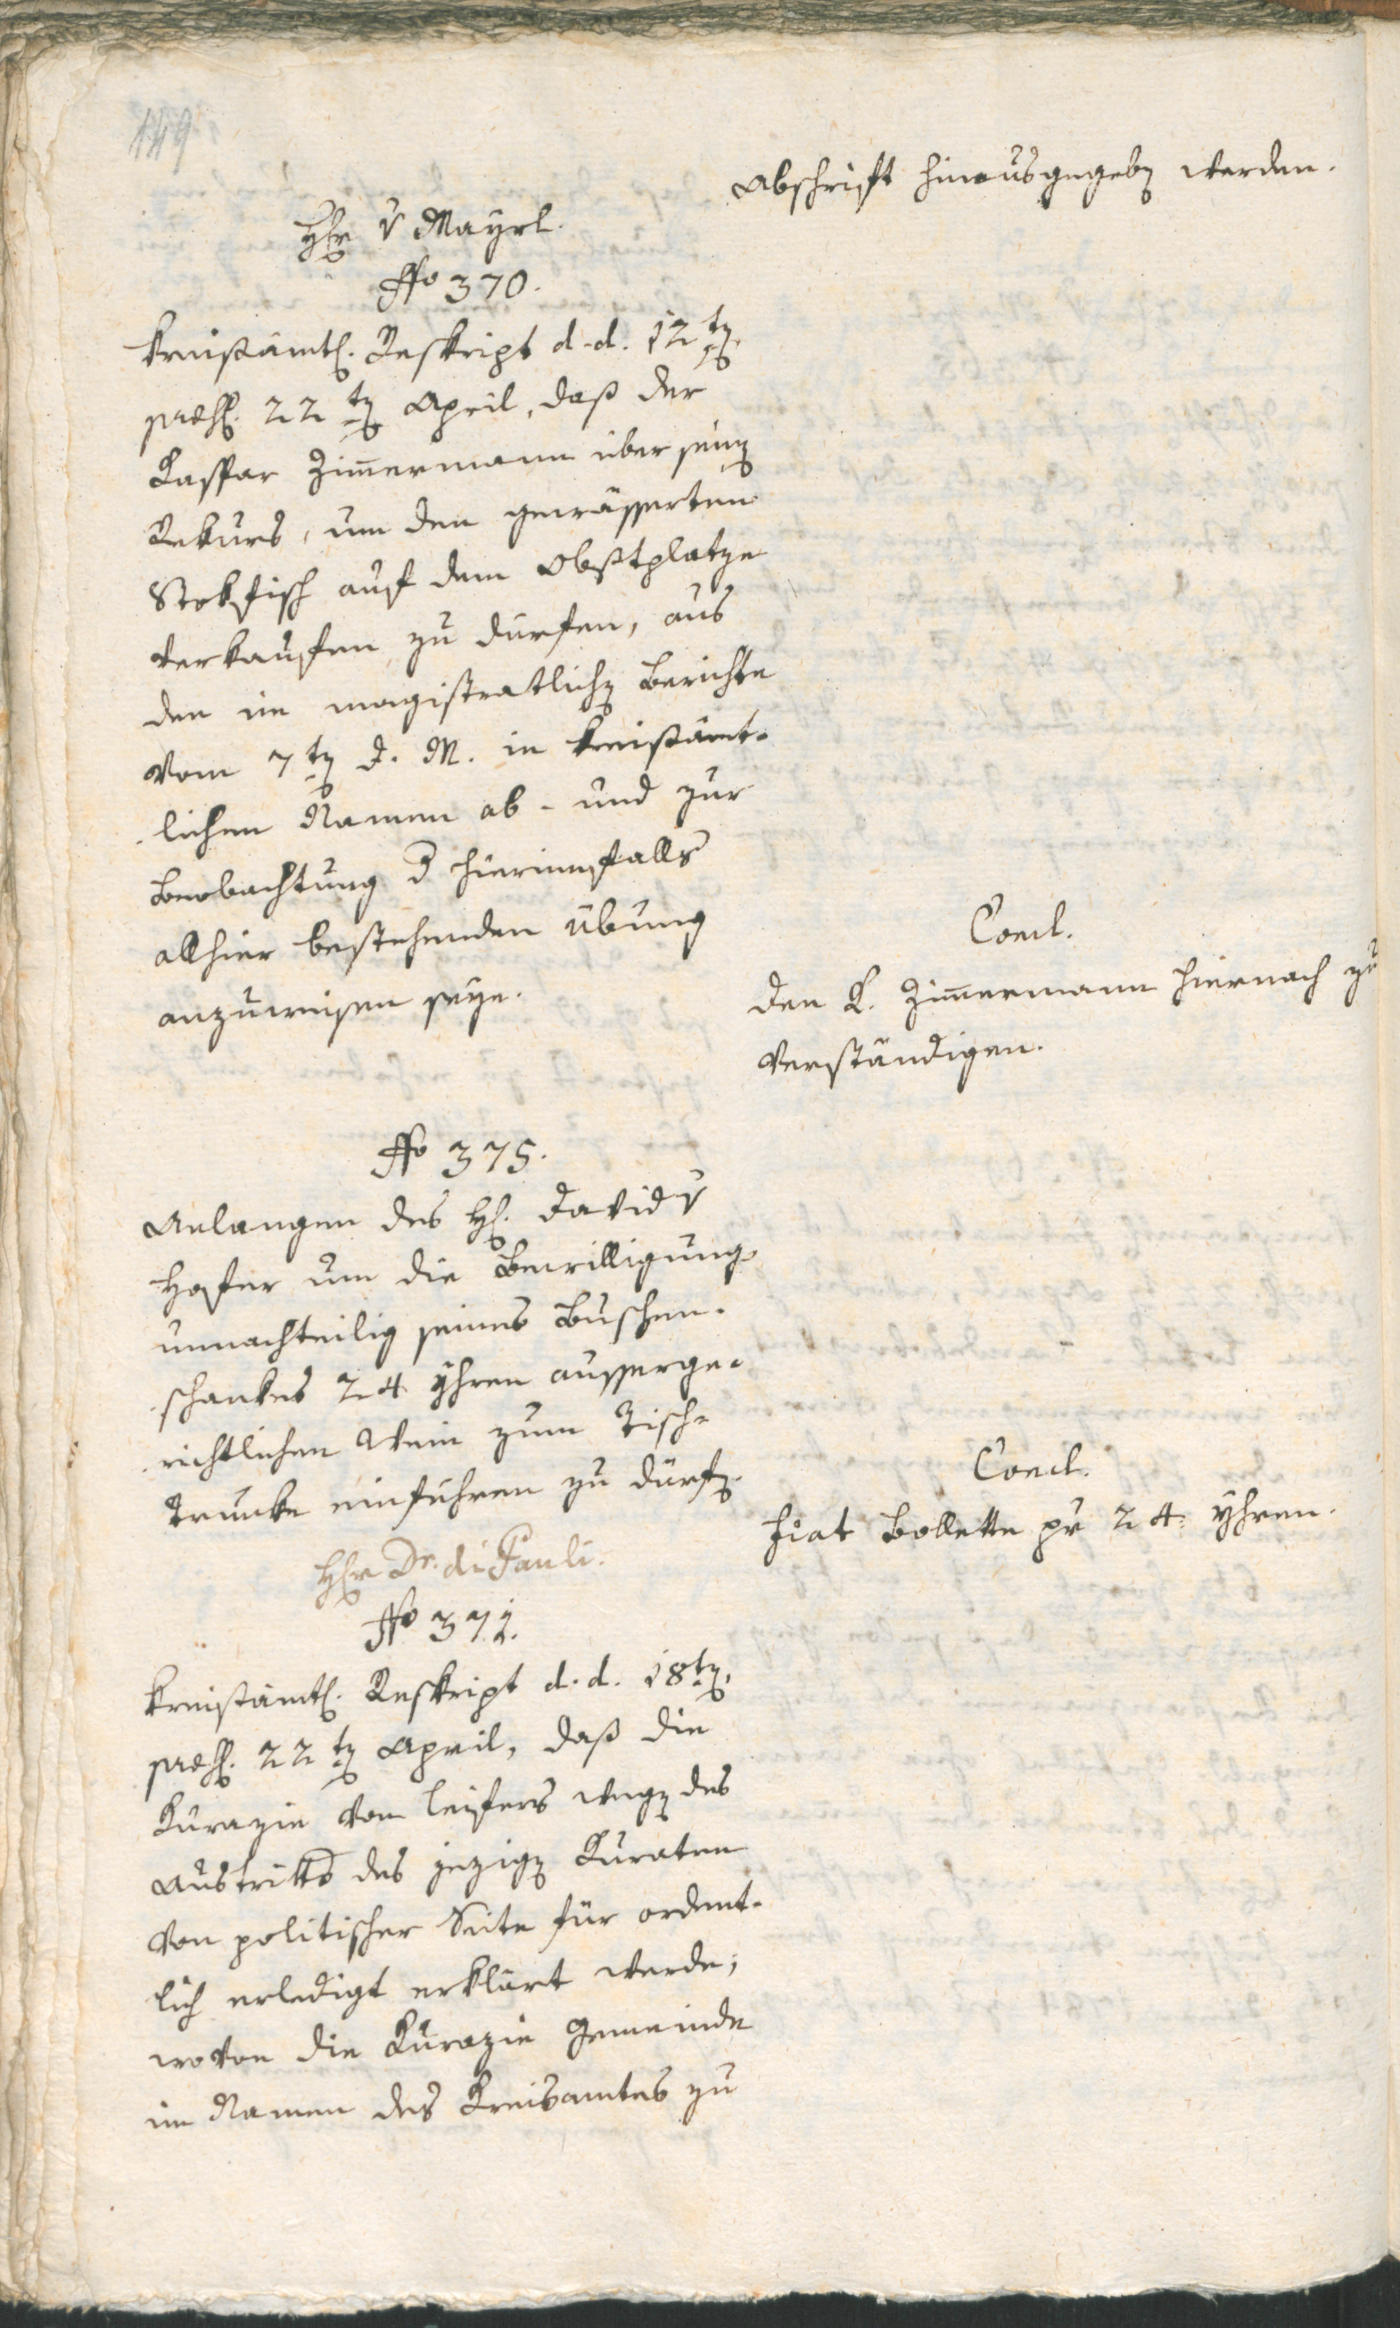 149
Abschrift hinausgegeben werden.
Hr v Mayrl.
No 370.
Kreisämtl. Reskript d. d. 12ten,
präs. 22ten April, daß der
Kaspar Zimmermann über seinen
Rekurs, um den gewässerten
Stokfisch auf dem Obstplatze
verkaufen zu dürfen, aus
den im magistratlichen Berichte
vom 7ten d. M. in kreisämt-
lichem Namen ab- und zur
Beobachtung d hierinnfalls
allhier bestehenden Übung
anzuweisen seye.
Concl.
Den K. Zimmermann hiernach zu
verständigen.
No 375.
Anlangen des H. David v
Hofer um die Bewilligung
unnachteilig seines Buschen-
schankes 24 Yhren aussergе-
richtlichen Wein zum Tisch-
trunke einführen zu dürfen.
Concl.
Fiat Bollette pr 24. Yhren.
Hr Dr. di Pauli.
No 371.
Kreisämtl. Reskript d. d. 18ten,
präs. 22ten April, daß die
Kurazie von Leifers wegen des
Austritts des jezigen Kuraten
von politischer Seite für ordent-
lich erledigt erklärt werde;
wovon die Kurazie Gemeinde
im Namen des Kreisamtes zu